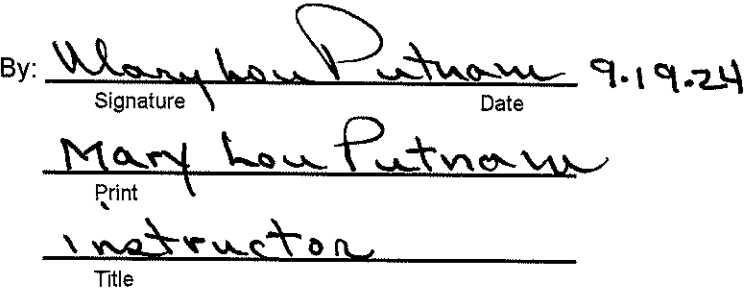 By: Mary Lou Putnam 9.19.24
Signature Date
Mary Lou Putnam
Print
instructor
Title